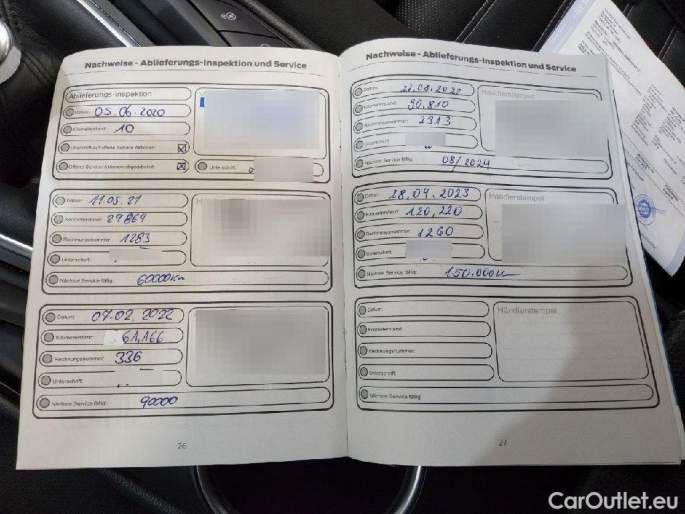 Nachweise - Ablieferungs-Inspektion und Service
Ablieferungs-Inspektion
Datum: 05.06.2020
Kilometerstand: 10
Unterschrift:
Datum: 11.05.21
Kilometerstand: 29869
Rechnungsnummer: 1283
Unterschrift:
Nächster Service fällig: 60000Km
Datum: 07.02.2022
Kilometerstand: 61,166
Rechnungsnummer: 336
Unterschrift:
Nächster Service fällig: 90000
26
Nachweise - Ablieferungs-Inspektion und Service
Datum: 22.09.2022
Händlerstempel
Kilometerstand: 90.810
Rechnungsnummer: 2313
Unterschrift:
Nächster Service fällig: 08/2024
Datum: 28.04.2023
Händlerstempel
Kilometerstand: 120,220
Rechnungsnummer: 1260
Unterschrift:
Nächster Service fällig: 150.000km
Datum:
Händlerstempel
Kilometerstand:
Rechnungsnummer:
Unterschrift:
Nächster Service fällig:
27
CarOutlet.eu